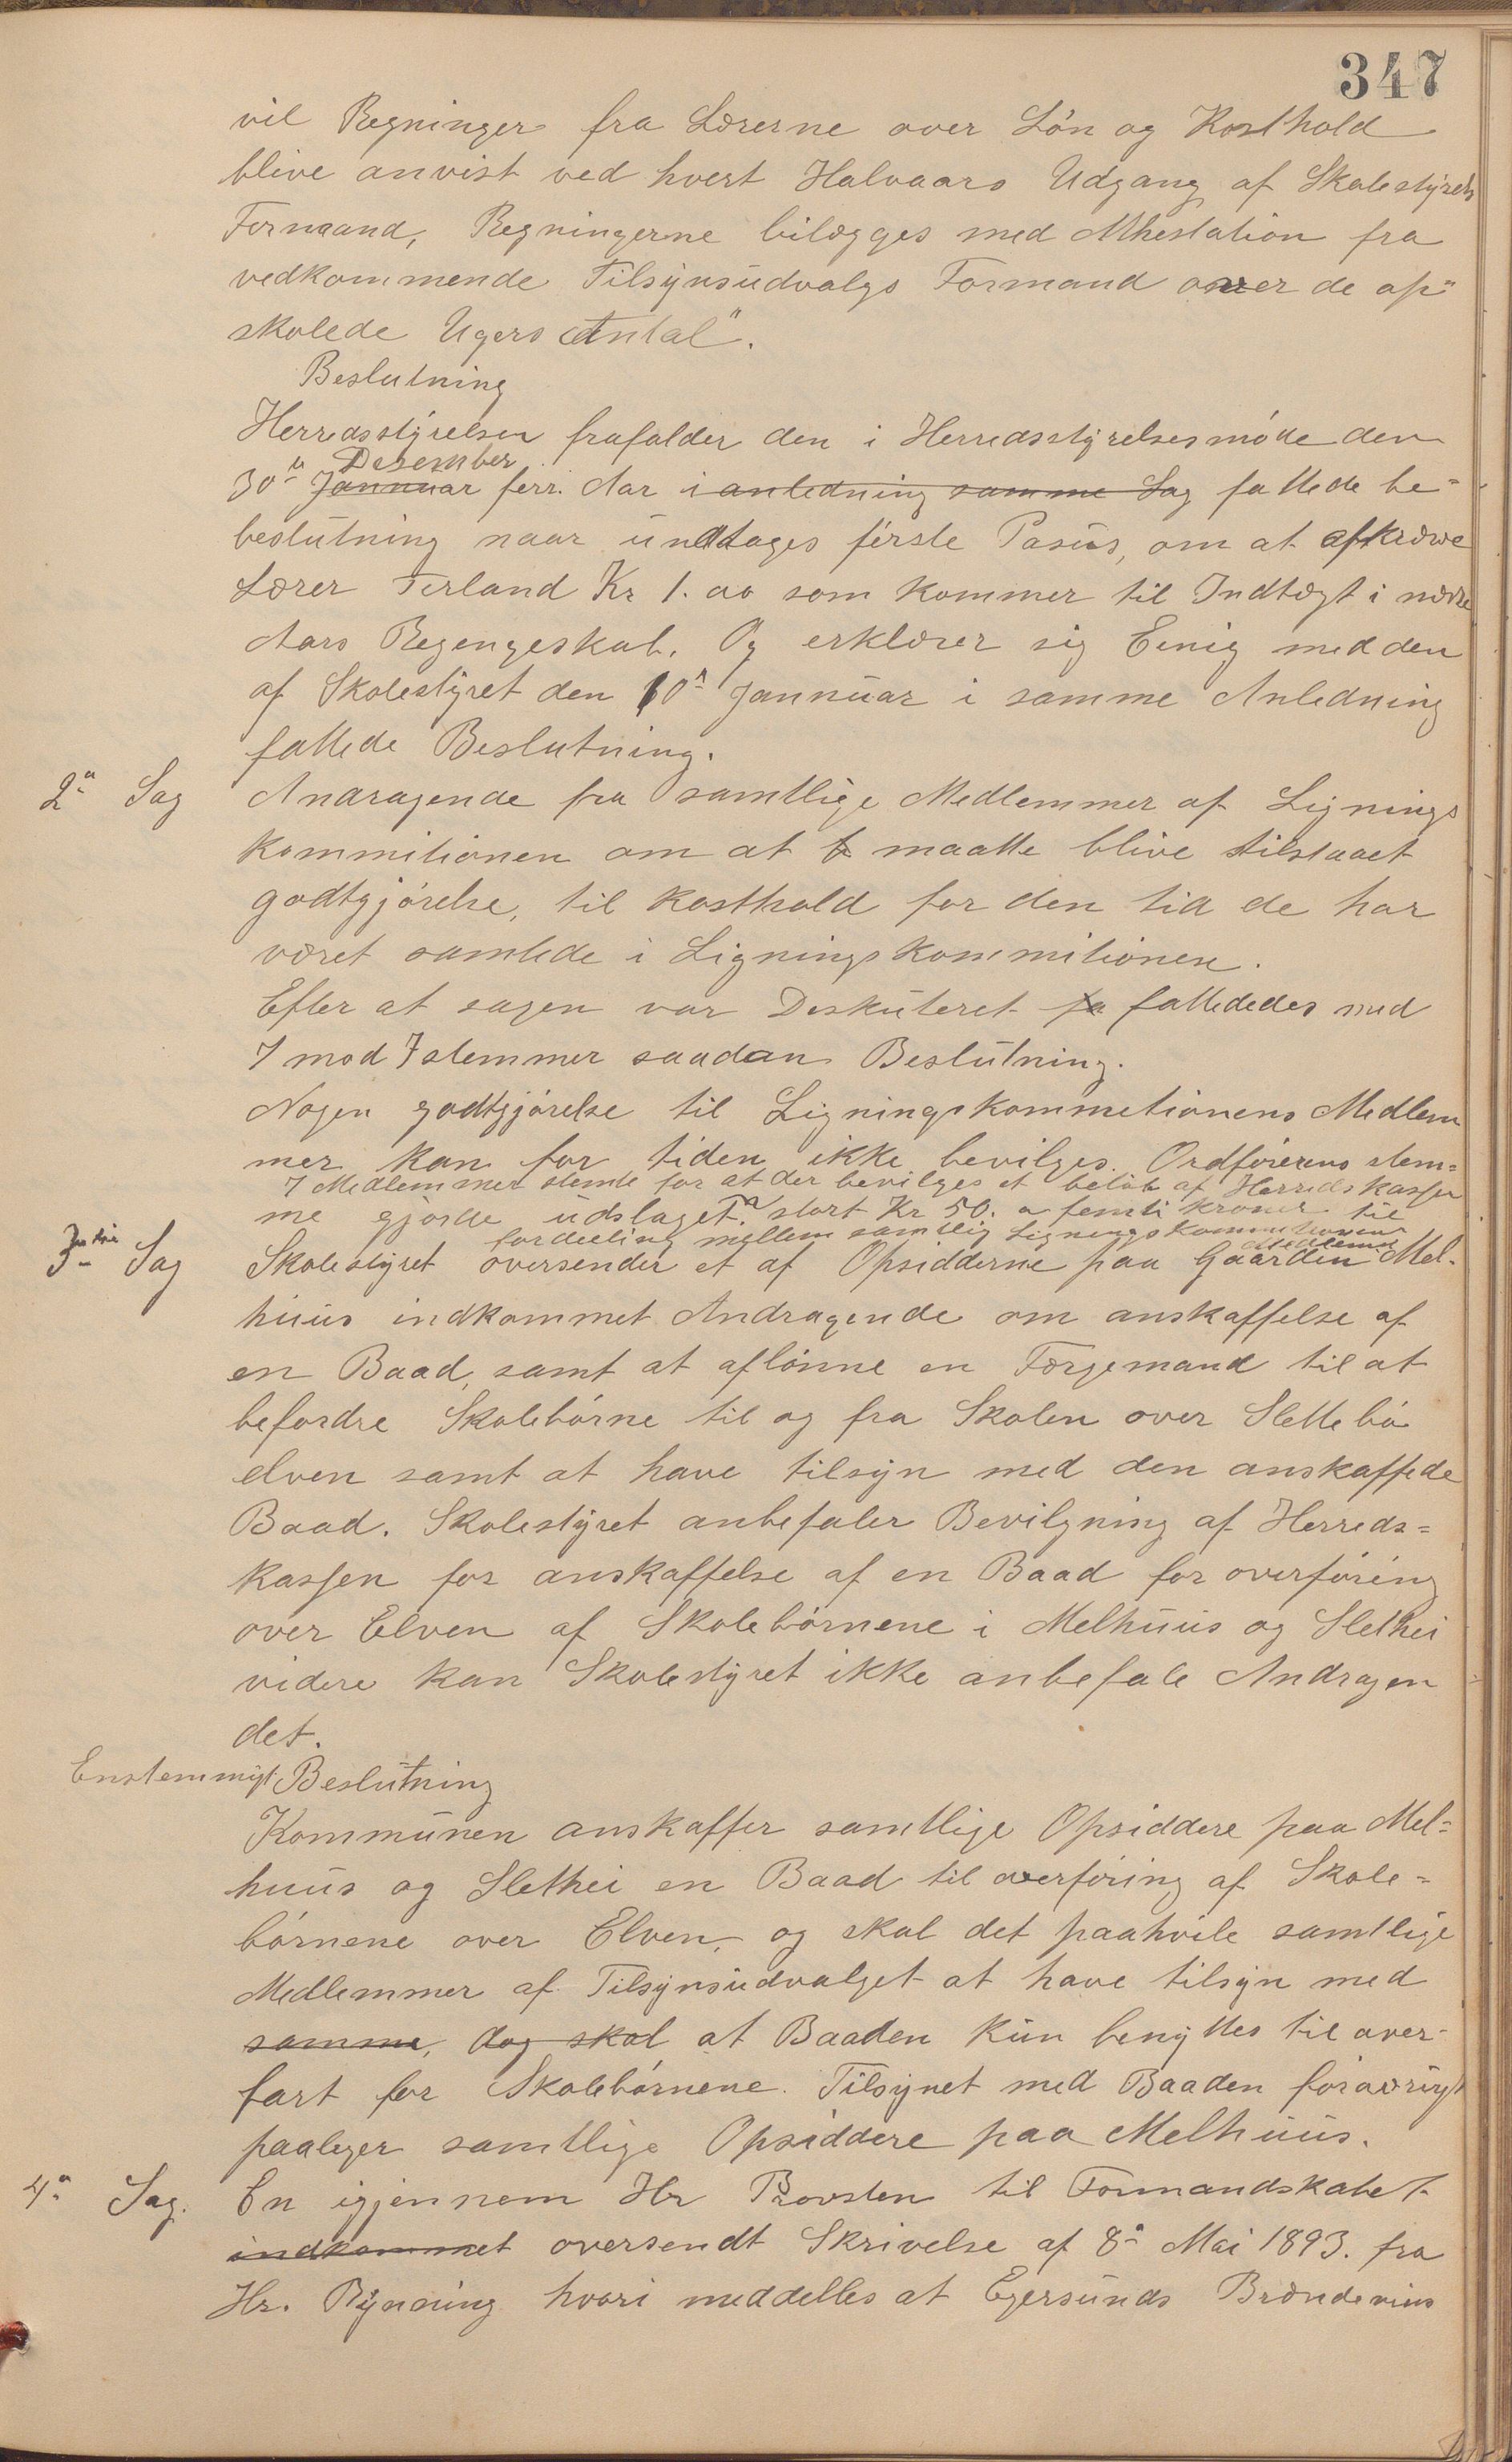 347
vil Regninger fra Lærerne over Lön og Kosthold
blive anvist ved hvert Halvaars Udgang af Skolestyrets
Formand, Regningerne bilægges med Athestation fra
vedkommende Tilsynsudvalgs Formand over de op-
skolede Ugers Antal".
Beslutning
Herredsstyrelsen frafalder den i Herredsstyrelsesmöde den
Desember
30te Jannuar forr. Aar i anledning samme Sag fattede be-
beslutning naar undtages förste Pasus, om at afkræve
Lærer Terland Kr 1.00 som kommer til Indtægt i nærv
Aars Regengeskab. Og erklærer sig Eenig med den
af Skolestyret den 10n Jannuar i samme Anledning
fattede Beslutning.
2n Sag Andragende fra samtlige Medlemmer af Lignings
kommitionen om at maatte blive tilstaaet
godtgjörelse, til kosthold for den tid de har
været samlede i Ligningskommitionen.
Efter at sagen var Deskuteret fa fattededes med
7 mod 7 stemmer saadan Beslutning.
Nogen godtgjörelse til Ligningskommetionens Medlem
mer kan for tiden ikke bevilges. Ordförerens stem-
7 Medlemmer stemte for at der bevilges et belöb af Herredskassen
me gjorde udslaget. stort Kr 50. a femti kroner til
fordeeling mellem samtlig Ligningskommitionens
Medlemmer
3die Sag Skolestyret oversender et af Opsidderne paa Gaarden Mel-
huus indkommet Andragende om anskaffelse af
en Baad, samt at aflönne en Færgemand til at
befordre Skolebörne til og fra Skolen over Slettebö
elven samt at have tilsyn med den anskaffede
Baad. Skolestyret anbefaler Bevilgning af Herreds-
kassen for anskaffelse af en Baad for overföring
over Elven af Skolebörnene i Melhuus og Slethei
videre kan Skolestyret ikke anbefale Andragen
det.
Enstemmigt Beslutning
Kommunen anskaffer samtlige Opsiddere paa Mel-
huus og Slethei en Baad til overföring af Skole-
börnene over Elven, og skal det paahvile samtlige
Medlemmer af Tilsynsudvalget at have tilsyn med
samme, dog skal at Baaden kun benyttes til over-
fart for Skolebörnene. Tilsynet med Baaden foravrigt
paaleger samtlige Opsiddere paa Melhuus.
4n Sag. En igjennem Hr Provsten til Formandskabet
indkommet oversendt Skrivelse af 8n Mai 1893. fra
Hr. Rynning hvori meddelles at Egersunds Brændevins